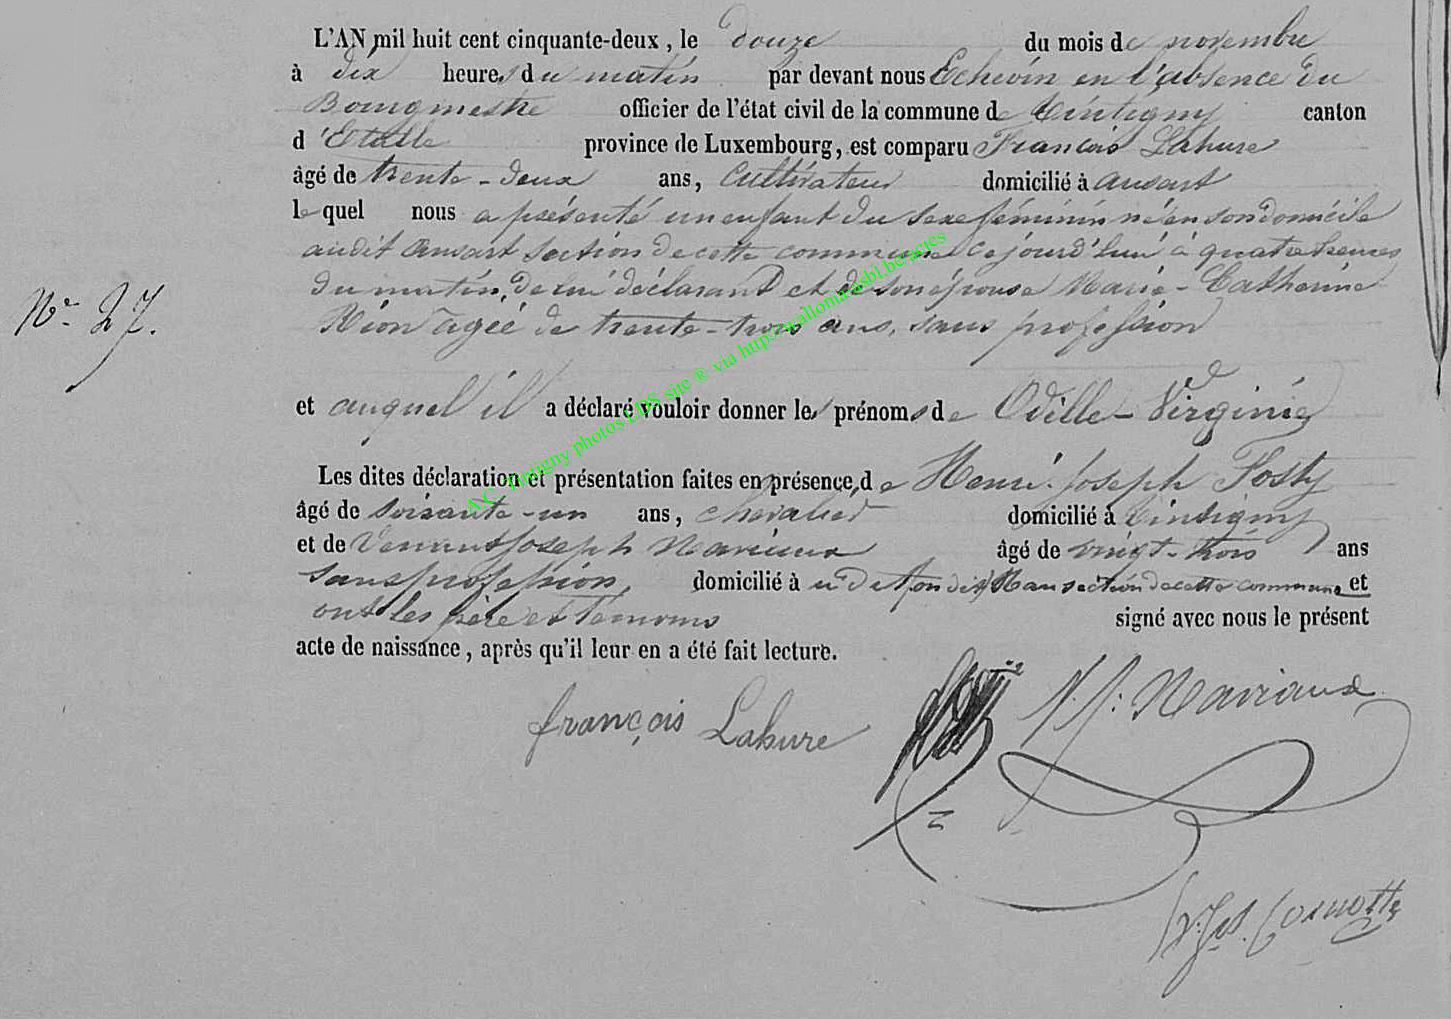 L'AN mil huit cent cinquante-deux, le douze du mois de novembre
à dix heures du matin par devant nous Echevin en l'absence du
Bourgmestre officier de l'état civil de la commune de Tintigny canton
d'Etalle province de Luxembourg, est comparu François Lahure
âgé de trente-deux ans, cultivateur domicilié à ansart
lequel nous a présenté un enfant du sexe féminin né en son domicile
audit ansart section de cette commune cejourd'hui à quatre heures
du matin, de lui déclarant et de son épouse Marie-Catherine
Nº 27.
Rion agée de trente-trois ans, sans profession
et auquel il a déclaré vouloir donner les prénoms de Odille-Virginie
Les dites déclaration et présentation faites en présence de Henri-Joseph Fosty
âgé de soisante-un ans, domicilié à Tintigny
et de Joseph âgé de vingt-trois ans
sans profession, domicilié à section de cette commune et
ont les père et temoins signé avec nous le présent
acte de naissance, après qu'il leur en a été fait lecture.
A.C. Tintigny photos LDS site ® via http://walloniaasbl.be/actes
françois Lahure